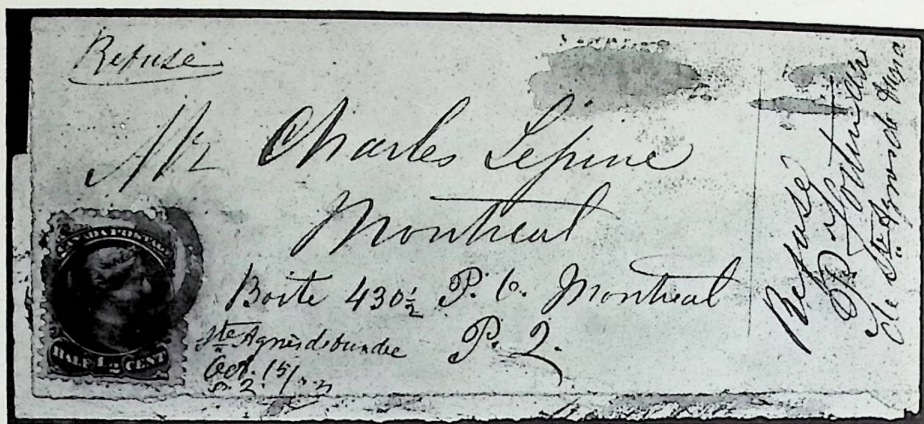 Refusé
Mr Charles Lepine
Montreal
Boite 430½ P. O. Montreal
P. Q.
Ste Agnes de Dundee
Oct. 15/
CANADA POSTAGE
HALF 1/2 CENT
Refuse
de Ste Agnes de